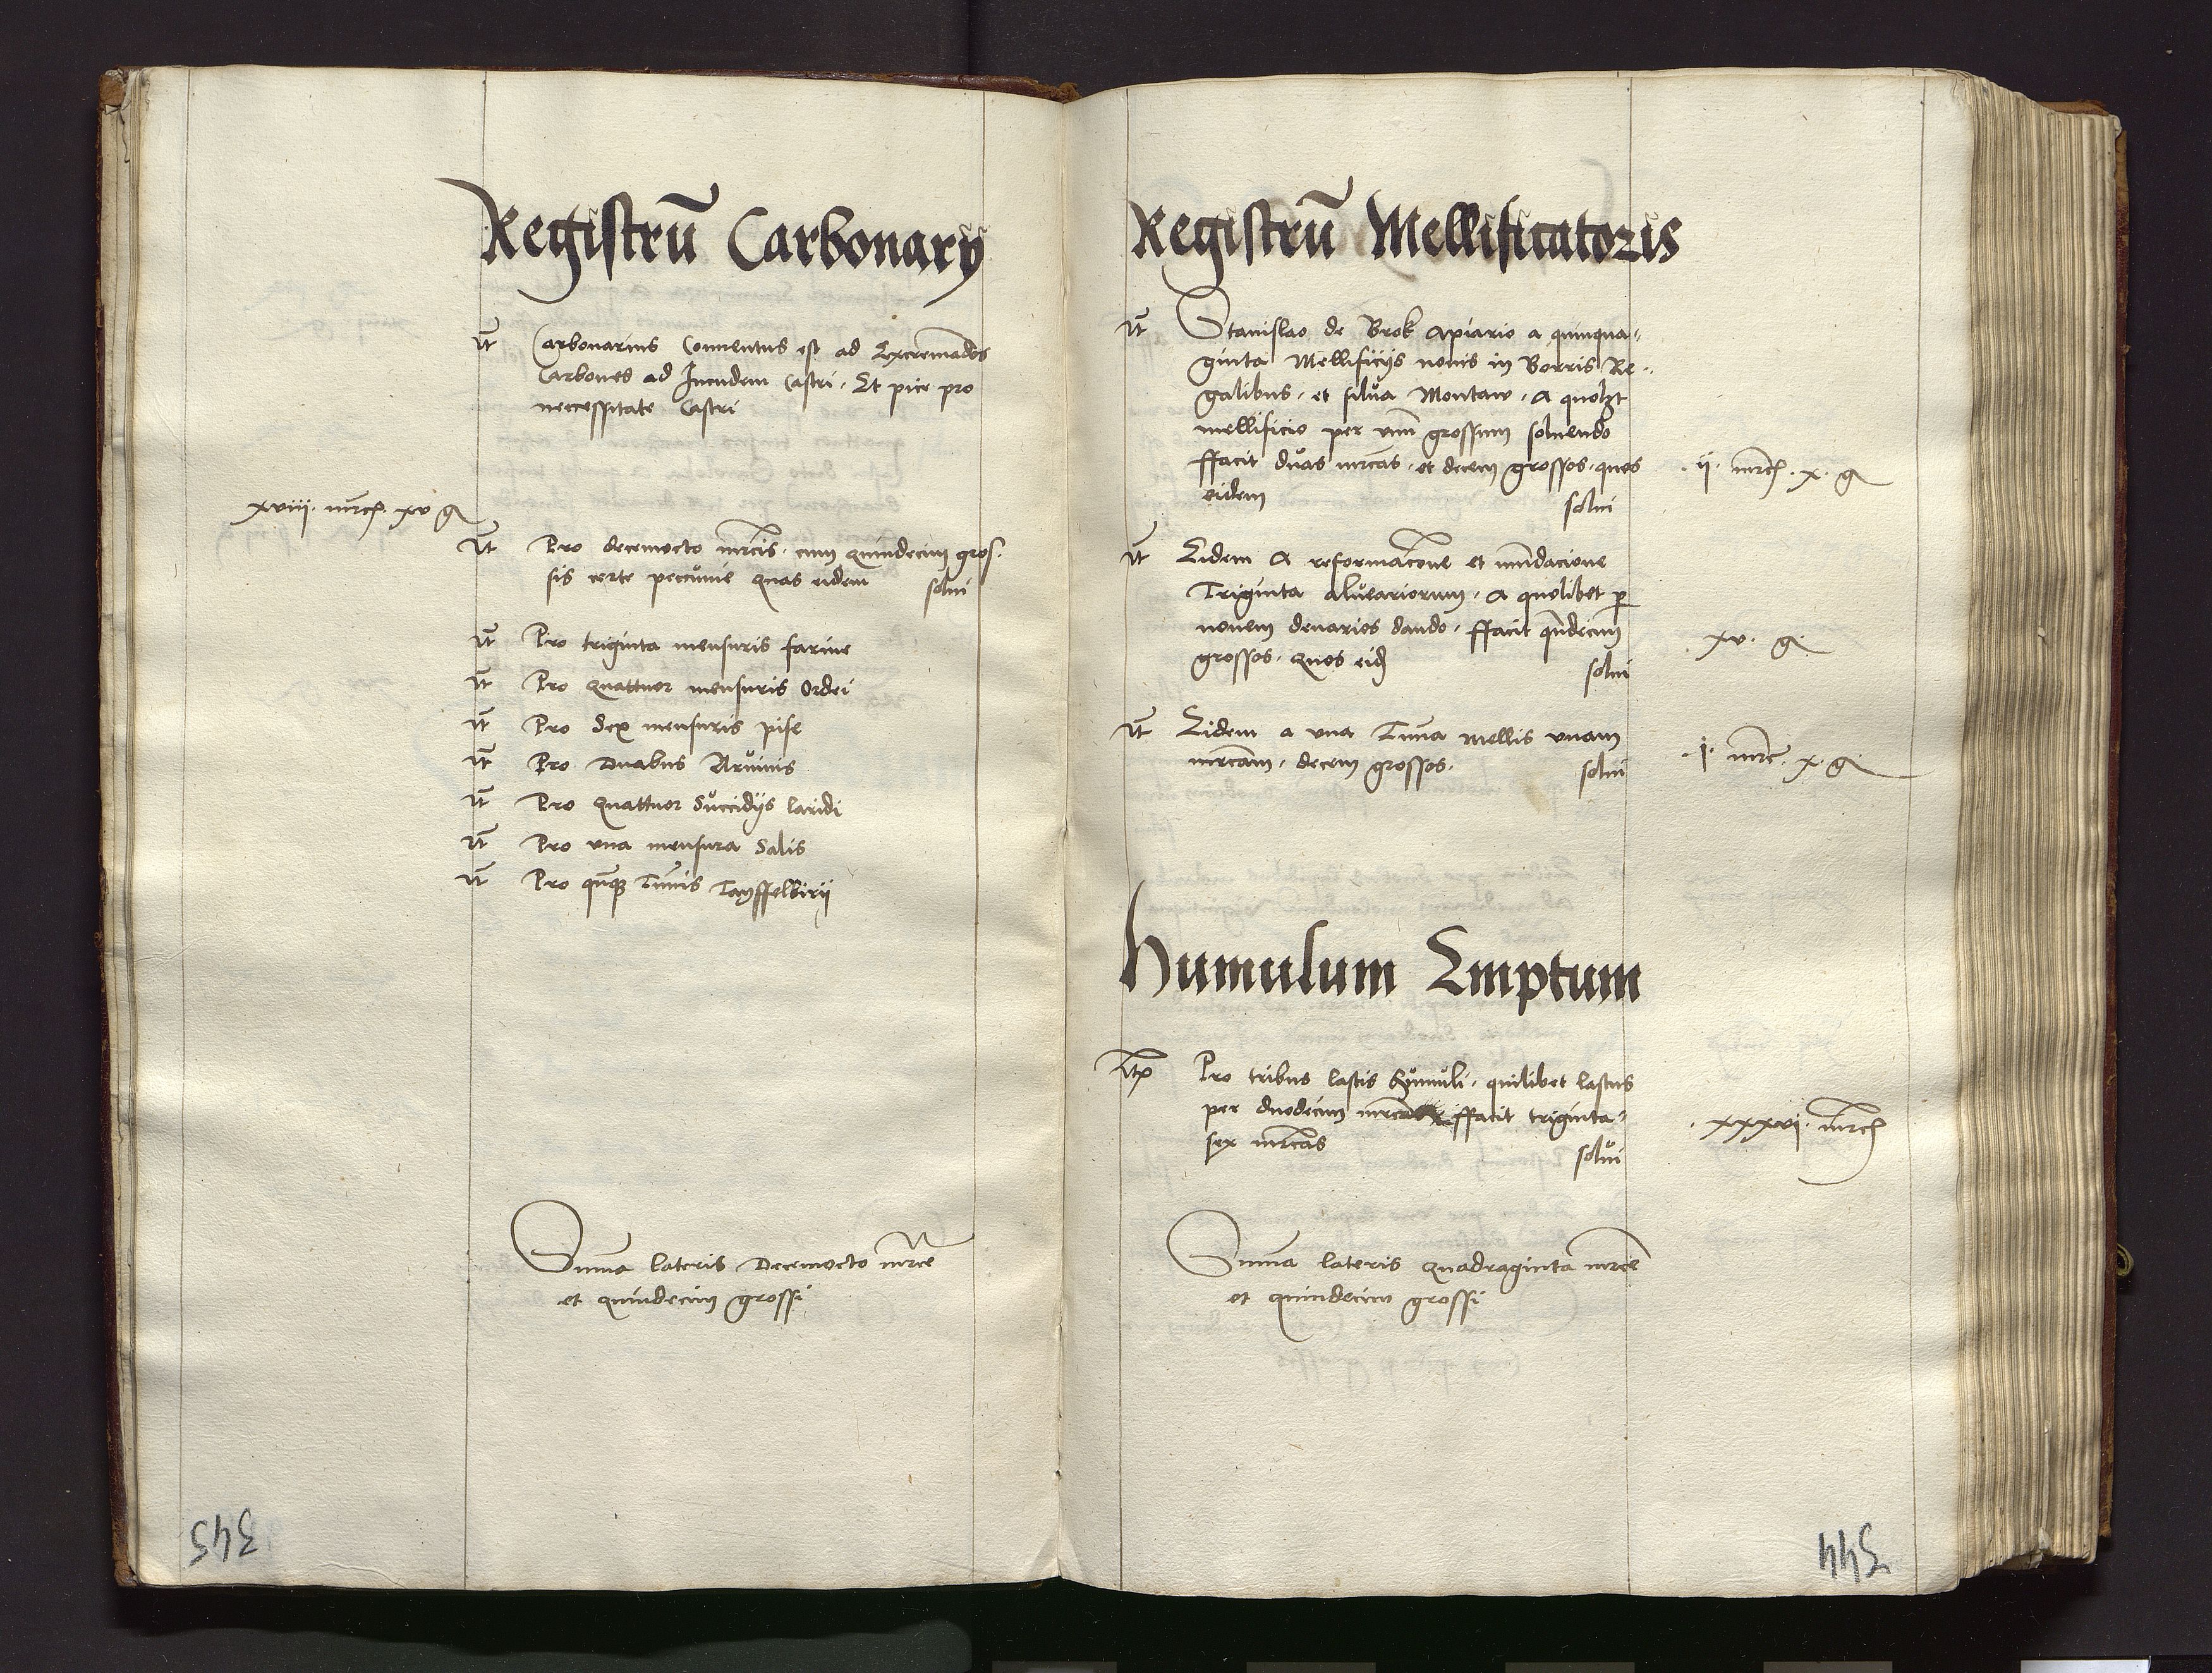 Registrū Carbonary
It Carbonarius Conventus est ad Excremandos
Carbones ad Incudem Castri. Et pice pro
neccessitate Castri
xviii. mrc. xv g
It Pro decemocto mrcis. cum quindecim gros.
sis certe peccunie quas eidem solui
It Pro triginta mensuris farine
It Pro quattuor mensuris Ordei
It Pro Sex mensuris pise
It Pro Duabus Arvinis
It Pro quattuor Succidijs laridi
It Pro una mensura Salis
It Pro quīq Tunis Tayffelbirij
Suma lateris Decemocto mrce
et quindecim grossi
345
Registrū Mellificatoris
It Stanislao de Brok Apiario a quinqua-
ginta Mellificijs novis in Borris Re-
galibus. et silva Montaw. A quolzt
mellificio per unū grossum solvendo
ffacit duas mrcas. et decem grossos. quos .ii. mrc. x. g
eidem solui
It Eidem A reformacōne et mūdacione
Triginta alveariorum. A quolibet p
novem denarios dando. ffacit qndecim xv. g.
grossos. quos eid solui
It Eidem a una Tuna mellis unam
mrcam. decem grossos. solui .i. mrc. x. g.
Humulum Emptum
Itm Pro tribus lastis Humuli. quilibet lastus
per duodecim mrcas ffacit triginta-
sex mrcas solui . xxxvi. mrc
Suma lateris quadraginta mrce
et quindecim grossi
344